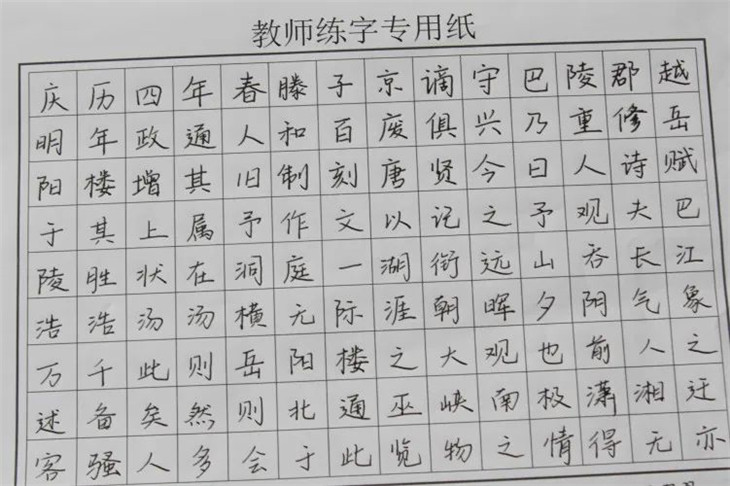 教师练字专用纸
庆历四年春滕子京谪守巴陵郡越
明年政通人和百废俱兴乃重修岳
阳楼增其旧制刻唐贤今日人诗赋
于其上属予作文以记之予观夫巴
陵胜状在洞庭一湖衔远山吞长江
浩浩汤汤横无际涯朝晖夕阴气象
万千此则岳阳楼之大观也前人之
述备矣然则北通巫峡南极潇湘迁
客骚人多会于此览物之情得无亦